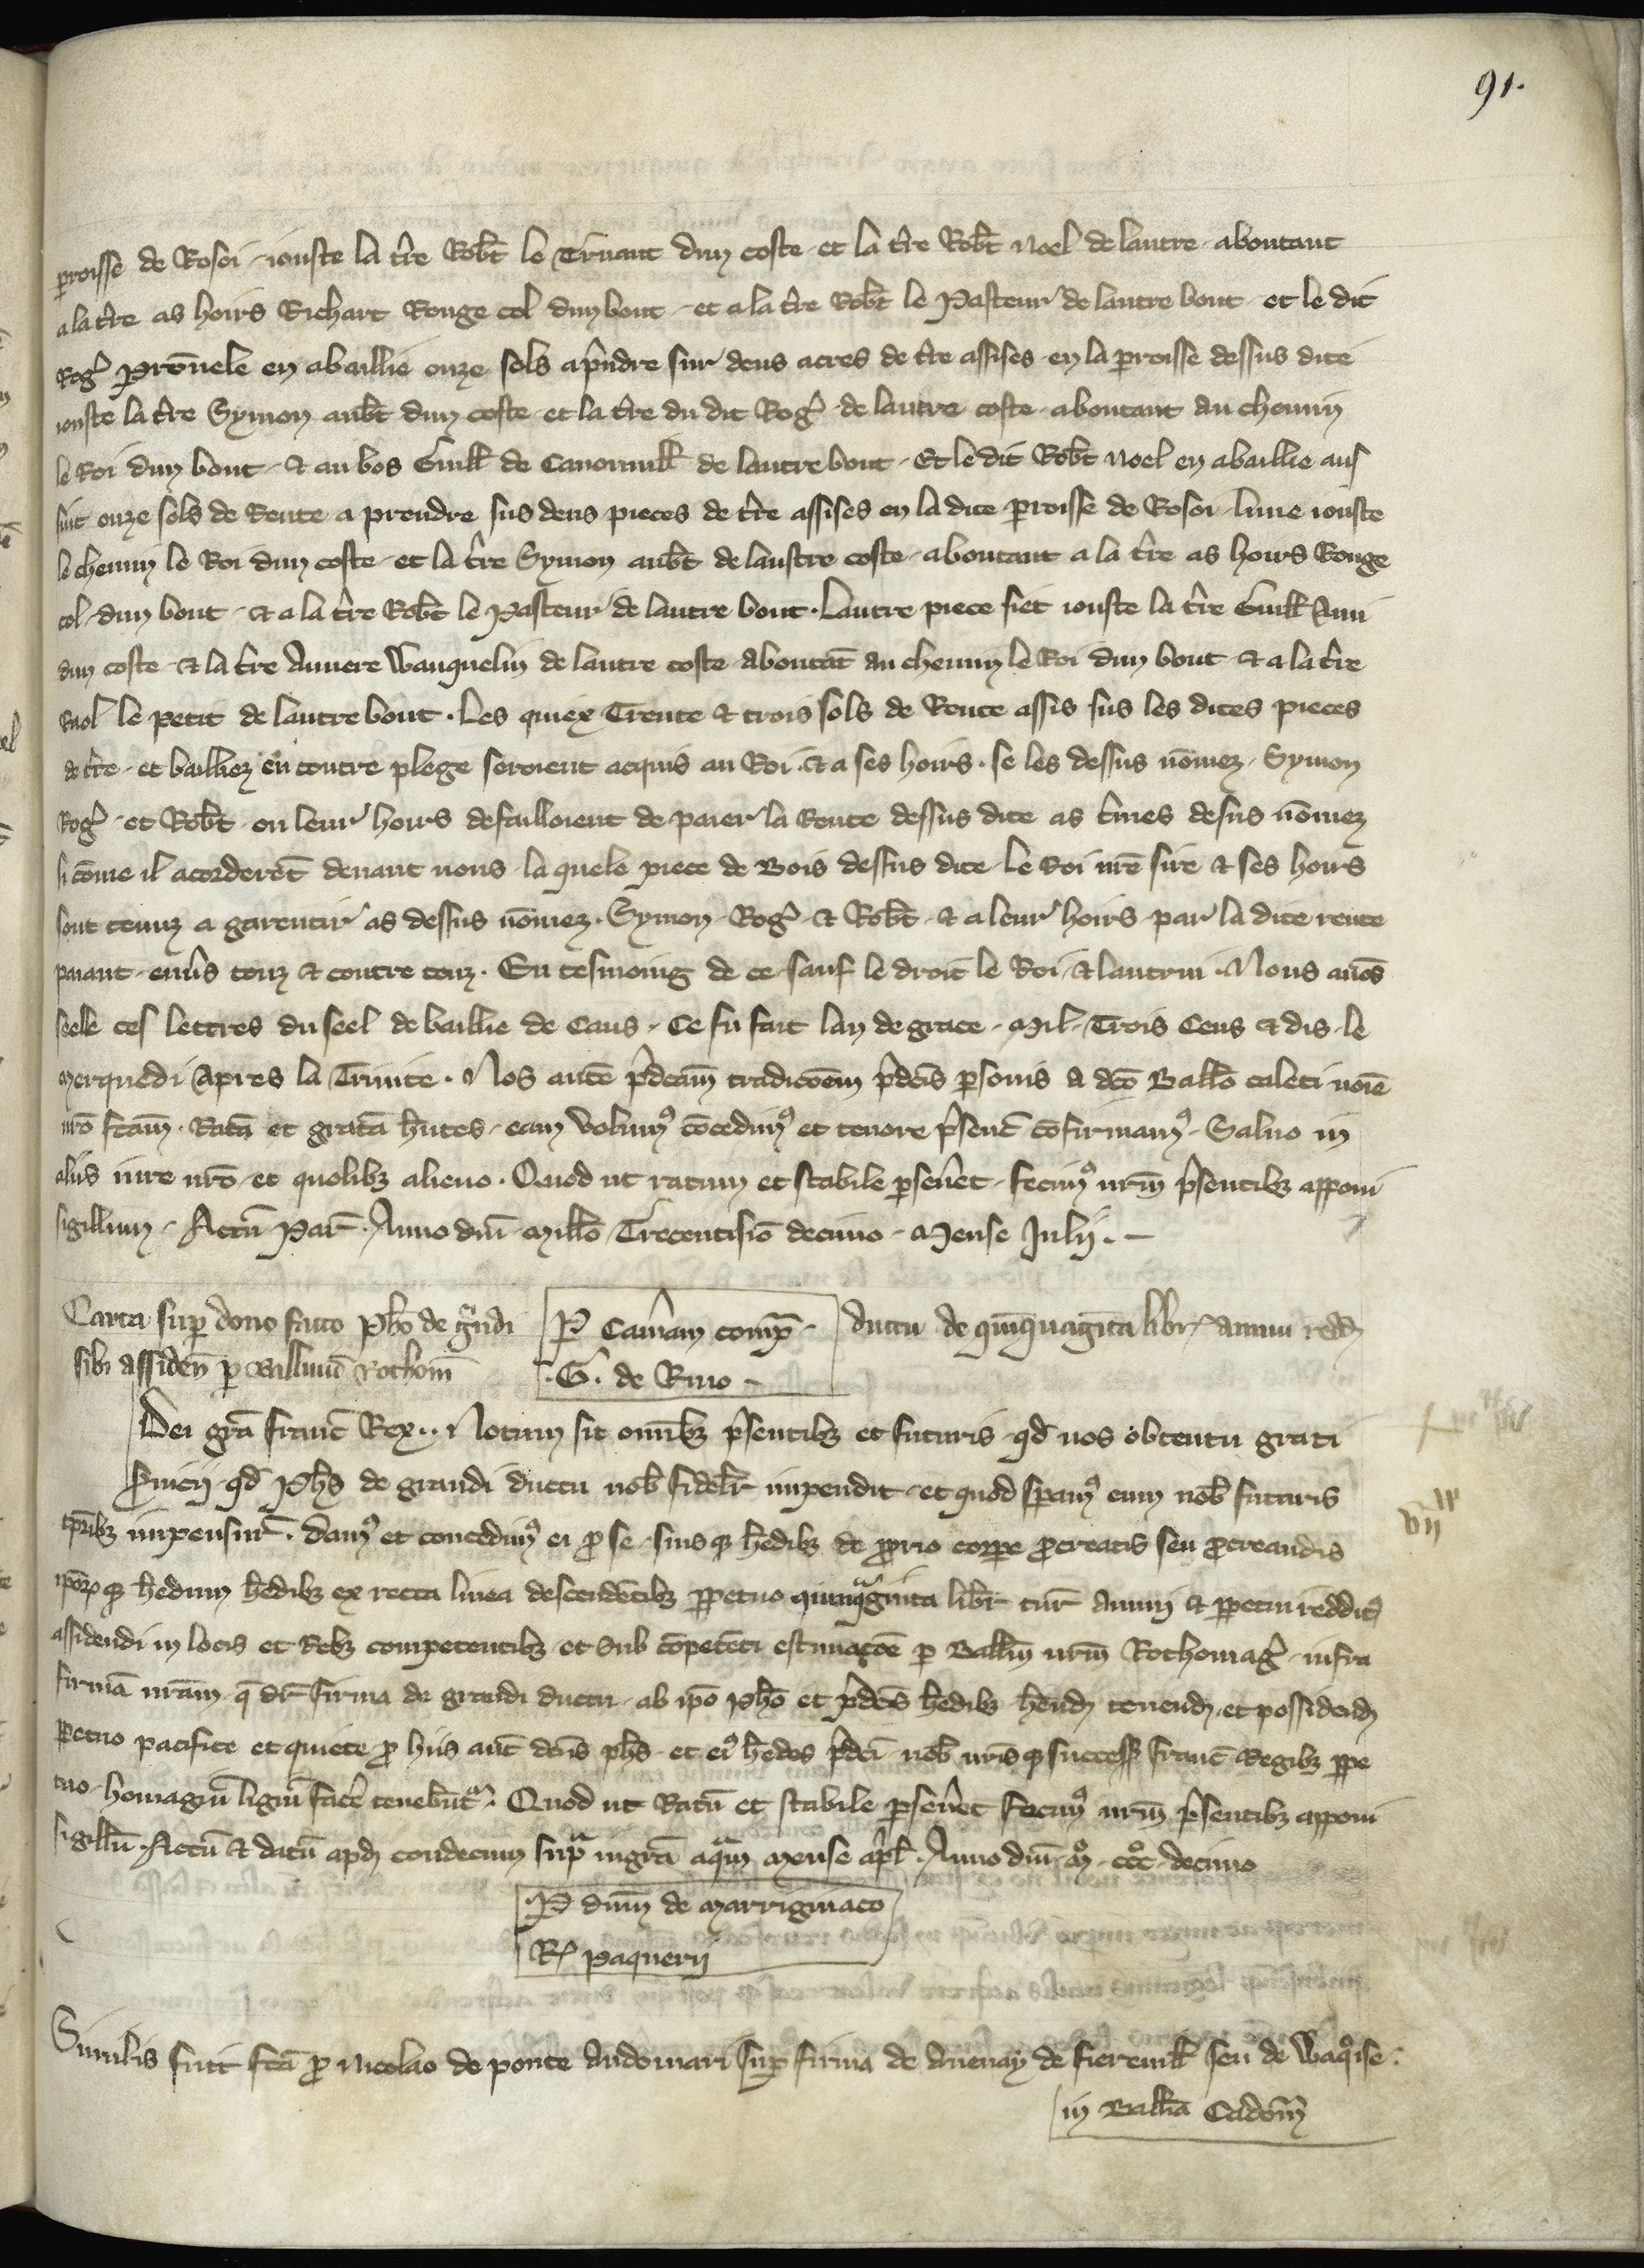 91.
ꝑroisse de Rosoi . iouste la t̃re Rob̃t le Truant dun coste . et la t̃re Rob̃t Noel de lautre . aboutant
a la t̃re as hoirs Richart Rouge col dun bout . et a la t̃re Rob̃t le Pasteur de lautre bout . et le dit
Rog̃ Pron̄uele en abaillie onze sols a p̃ndre sur deus acres de t̃re assises en la ꝑroisse dessus dite
iouste la t̃re Symon aub̃t dun coste . et la t̃re du dit Rog̃ de lautre coste . aboutant au chemin
le Roi dun bout . et au bos Guill̃ de Canoruill̃ de lautre bout . Et le dit Rob̃t Noel en abaillie aus
siit onze sols de Rente a prendre sus deus pieces de t̃re assises en la dite ꝑroisse de Rosoi . lune iouste
le chemin le Roi dun coste . et la t̃re Symon aub̃t de laustre coste . aboutant a la t̃re as hoirs Rouge
col . dun bout . et a la t̃re Rob̃t le Pasteur de lautre bout . Lautre piece siet iouste la t̃re Guill̃
dun coste . et la t̃re Auuere Wauquelin de lautre coste . aboutāt au chemin le Roi dun bout et a la t̃re
Raol le petit de lautre bout . Les quiex Trente et trois sols de Rente assis sus les dites pieces
de t̃re . et bailliez en contre plege seroient acquis au Roi . et a ses hoirs . se les dessus nōmez . Symon
Rog̃ . et Rob̃t . ou leur hoirs defailloient de paier la Rente dessus dite as t̃mes desus nōmez
si cōme il acorderēt deuant nous . la quele piece de Bois dessus dite . le Roi nr̄e sire et ses hoirs
sont tenuz a garentir as dessus nōmez . Symon . Rog̃ . et Rob̃t . et a leur hoirs . par la dite rente
paiant . enu̇s touz et contre touz . En tesmoing de ce . sauf le droit le Roi . et lautrui . Nous auōs
seele ces lettres du seel de baillie de Caus . Ce fu fait lan de grace . Mil . Trois Cens et dis . le
merquedi apres la Trinite . Nos autē p̃dcām tradicōem p̃dcīs ꝑsonis a dcō Ball̃o caleti noīe
nr̄o fcām . Ratā et gratā h̃ntes . eam volum⁹ cōcedim⁹ et tenore p̃senc̄ cōfirmam⁹ . Saluo in
aliis iure nr̄o . et quolibꝫ alieno . Quod ut ratum et stabile ꝑseu̇et . fecim⁹ nr̄m p̃sentibꝫ apponi
sigillum . Actū Par̃ . Anno dnī Mill̃o Trecentisīo decimo . Mense Julij . —
Carta suꝑ dono facto Ph̃o de g̃ndi
ꝑ Cam̄am compꝫ
ductu de quīquagīta libr̃ annui redd̃
sibi assiden̄ ꝑ Balliuū Rothom̄
. G . de Riuo —
Dei grā franc̄ Rex .. Notum sit omībꝫ p̃sentibꝫ et futuris . qd̃ nos obtentu grati
ẜuicij . qd̃ Ph̃s de grandi ductu nob̃ fidelr̃ impendit . et quod spam⁹ eum nob̃ futuris
tꝑibꝫ impensur̃ . dam⁹ et concedim⁹ ei ꝓ se . suisqꝫ h̃edibꝫ de ꝓprio corꝑe ꝓcreatis seu ꝓcreandis
ip̄oꝝ qꝫ h̃edum h̃edibꝫ ex recta linea descendētibꝫ ꝑpetuo quinqᵃginta libr̃ tur̃ annui et ꝑpetui reddit⁹
assidendi in locis et Rebꝫ competentibꝫ et sub cōpetēti estimacōe ꝑ Ball̃m nr̄m Rothomag̃ . infra
firmā nr̄am . q̄ dr̄ firma de grandi ductu . ab ip̄o ph̃o et p̃dcīs h̃edibꝫ h̃end̃ tenend̃ et possidend̃
ꝑpetuo pacifice et quiete . ꝓ hiis aut̃ dcūs ph̃s . et ei⁹ h̃edes p̃dcī . nob̃ nr̄isqꝫ success̃ franc̄ Regibꝫ ꝑpe
tuo . homagiū ligiū face̊ tenebūtʳ . Quod ut Ratū et stabile ꝑseu̇et fecim⁹ nr̄m p̃sentibꝫ apponi
sigillū . Actū et datū apd̃ condetum supᵃ ingrā aqᵃm mense ap̃l̃ . Anno dnī . M⁰ . ccc⁰ . decimo
ꝑ dnm̄ de Marrigniaco
R̃ Paquerij
Similis fuit fcā ꝓ Nicolao de ponte Audomari suꝑ firma de Auenay de fiereuill̃ seu de Waqⁱse .
in Ball̃ia Cadom̄